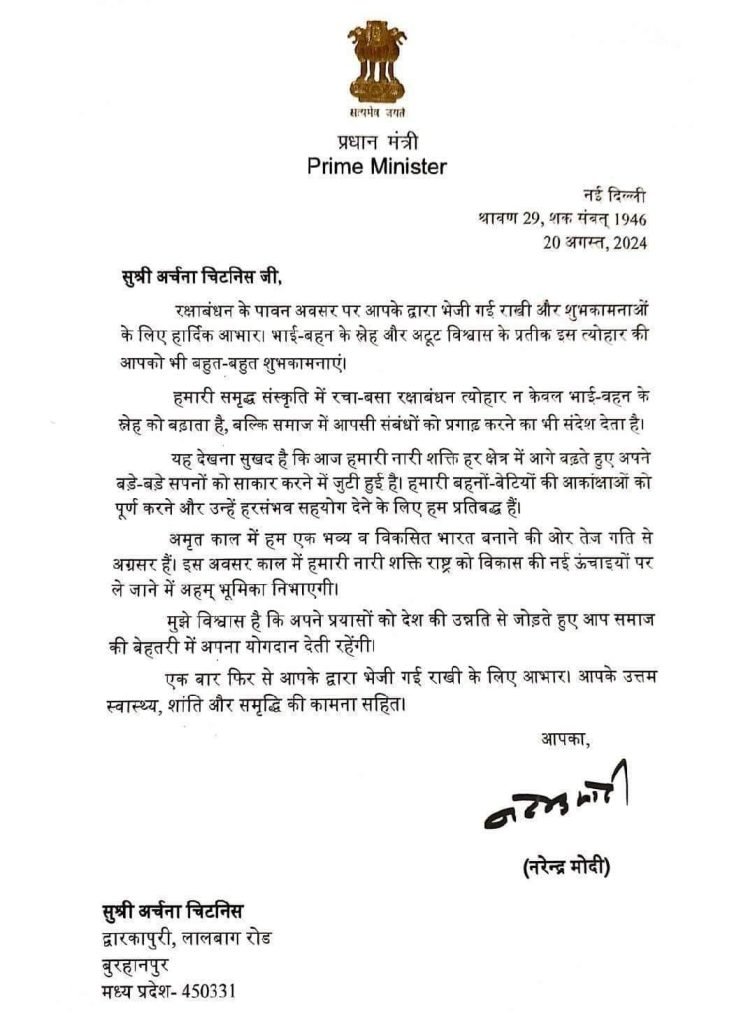 सत्यमेव जयते
प्रधान मंत्री
Prime Minister
नई दिल्ली
श्रावण 29, शक संवत् 1946
20 अगस्त, 2024
सुश्री अर्चना चिटनिस जी,
रक्षाबंधन के पावन अवसर पर आपके द्वारा भेजी गई राखी और शुभकामनाओं
के लिए हार्दिक आभार। भाई-बहन के स्नेह और अटूट विश्वास के प्रतीक इस त्योहार की
आपको भी बहुत-बहुत शुभकामनाएं।
हमारी समृद्ध संस्कृति में रचा-बसा रक्षाबंधन त्योहार न केवल भाई-बहन के
स्नेह को बढ़ाता है, बल्कि समाज में आपसी संबंधों को प्रगाढ़ करने का भी संदेश देता है।
यह देखना सुखद है कि आज हमारी नारी शक्ति हर क्षेत्र में आगे बढ़ते हुए अपने
बड़े-बड़े सपनों को साकार करने में जुटी हुई है। हमारी बहनों-बेटियों की आकांक्षाओं को
पूर्ण करने और उन्हें हरसंभव सहयोग देने के लिए हम प्रतिबद्ध हैं।
अमृत काल में हम एक भव्य व विकसित भारत बनाने की ओर तेज गति से
अग्रसर हैं। इस अवसर काल में हमारी नारी शक्ति राष्ट्र को विकास की नई ऊंचाइयों पर
ले जाने में अहम् भूमिका निभाएगी।
मुझे विश्वास है कि अपने प्रयासों को देश की उन्नति से जोड़ते हुए आप समाज
की बेहतरी में अपना योगदान देती रहेंगी।
एक बार फिर से आपके द्वारा भेजी गई राखी के लिए आभार। आपके उत्तम
स्वास्थ्य, शांति और समृद्धि की कामना सहित।
आपका,
नरेन्द्र मोदी
(नरेन्द्र मोदी)
सुश्री अर्चना चिटनिस
द्वारकापुरी, लालबाग रोड
बुरहानपुर
मध्य प्रदेश- 450331